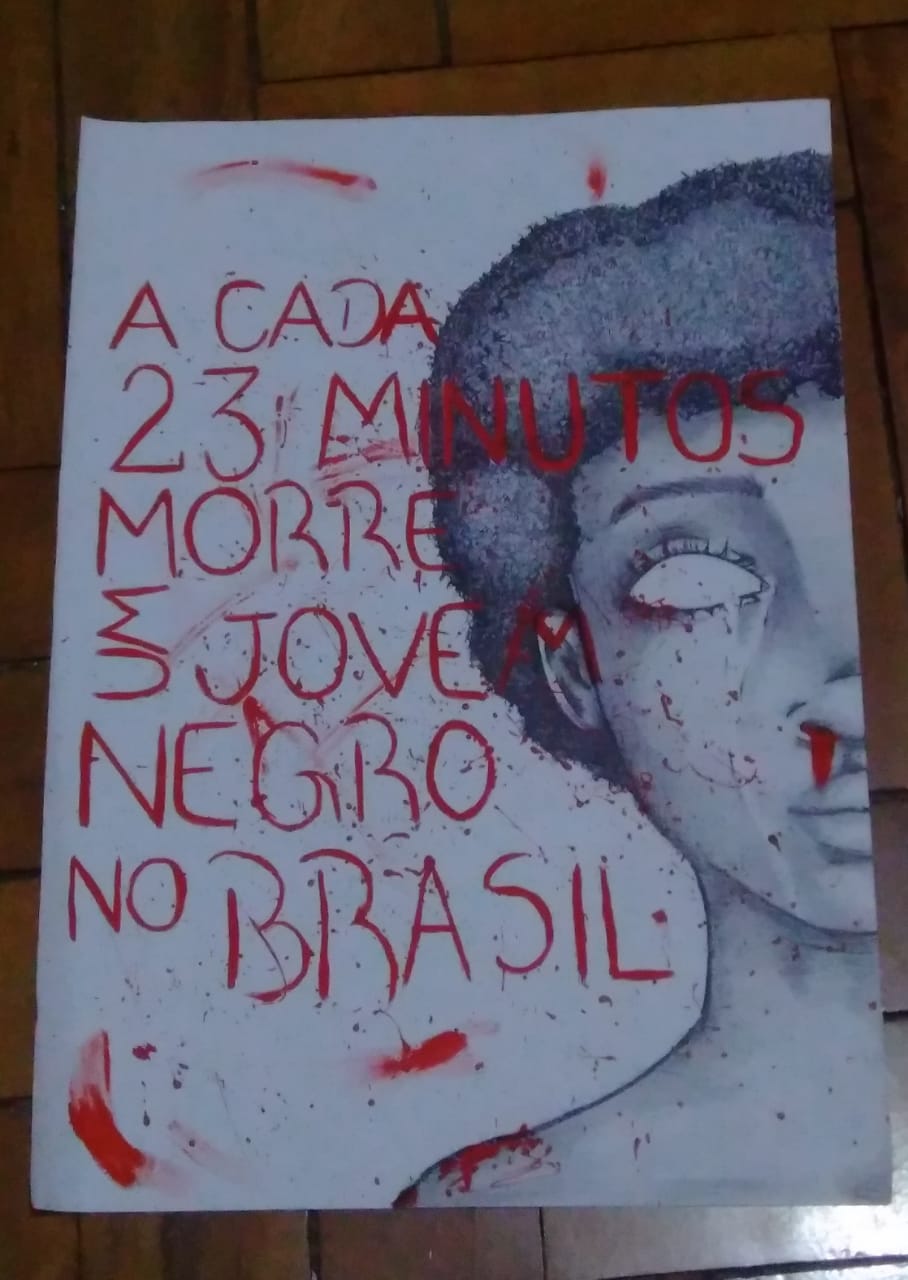 A CADA
23 MINUTOS
MORRE
UM JOVEM
NEGRO
NO BRASIL